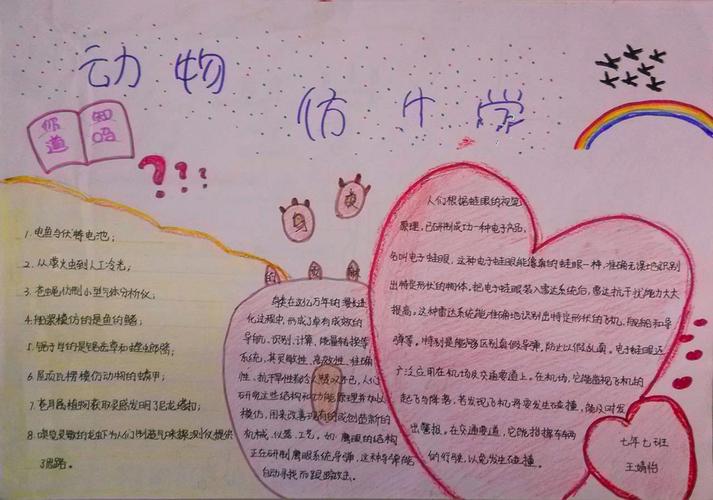 动物
仿生学
你知
道吗
???
1.电鱼与伏特电池；
2.从萤火虫到人工冷光；
3.苍蝇仿制小型气体分析仪；
4.船桨模仿的是鱼的鳍；
6.屋顶瓦楞模仿动物的鳞甲；
7.苍耳属植物获取灵感发明了尼龙搭扣；
8.嗅觉灵敏的龙虾为人们制造气味探测仪提供
了思路。
自我
的
身
在这亿万年的漫长进
化过程中，形成了卓有成效的
导航、识别、计算、能量转换等
系统，其灵敏性、高效性、准确
性、抗干扰性
人们
研究这些结构和功能原理并加以
模仿，用来改善现有的或创造新的
机械、仪器、工艺。如：鹰眼的结构
正在研制鹰眼系统导弹，这种导弹能
自动寻找而跟踪攻击。
人们根据蛙眼的视觉
原理，已研制成功一种电子产品，
名叫电子蛙眼，这种电子蛙眼能像真的蛙眼一样，准确无误地识别
出特定形状的物体。把电子蛙眼装入雷达系统后，雷达抗干扰能力大大
提高。这种雷达系统能准确地识别出特定形状的飞机、舰船和导
弹等。特别是能够区别真假导弹，防止以假乱真。电子蛙眼还
广泛应用在机场及交通要道上。在机场，它能监视飞机的
起飞与降落，若发现飞机将要发生碰撞，能及时发
出警报。在交通要道，它能指挥车辆
的行驶，以免发生碰撞。
七年七班
王婧怡